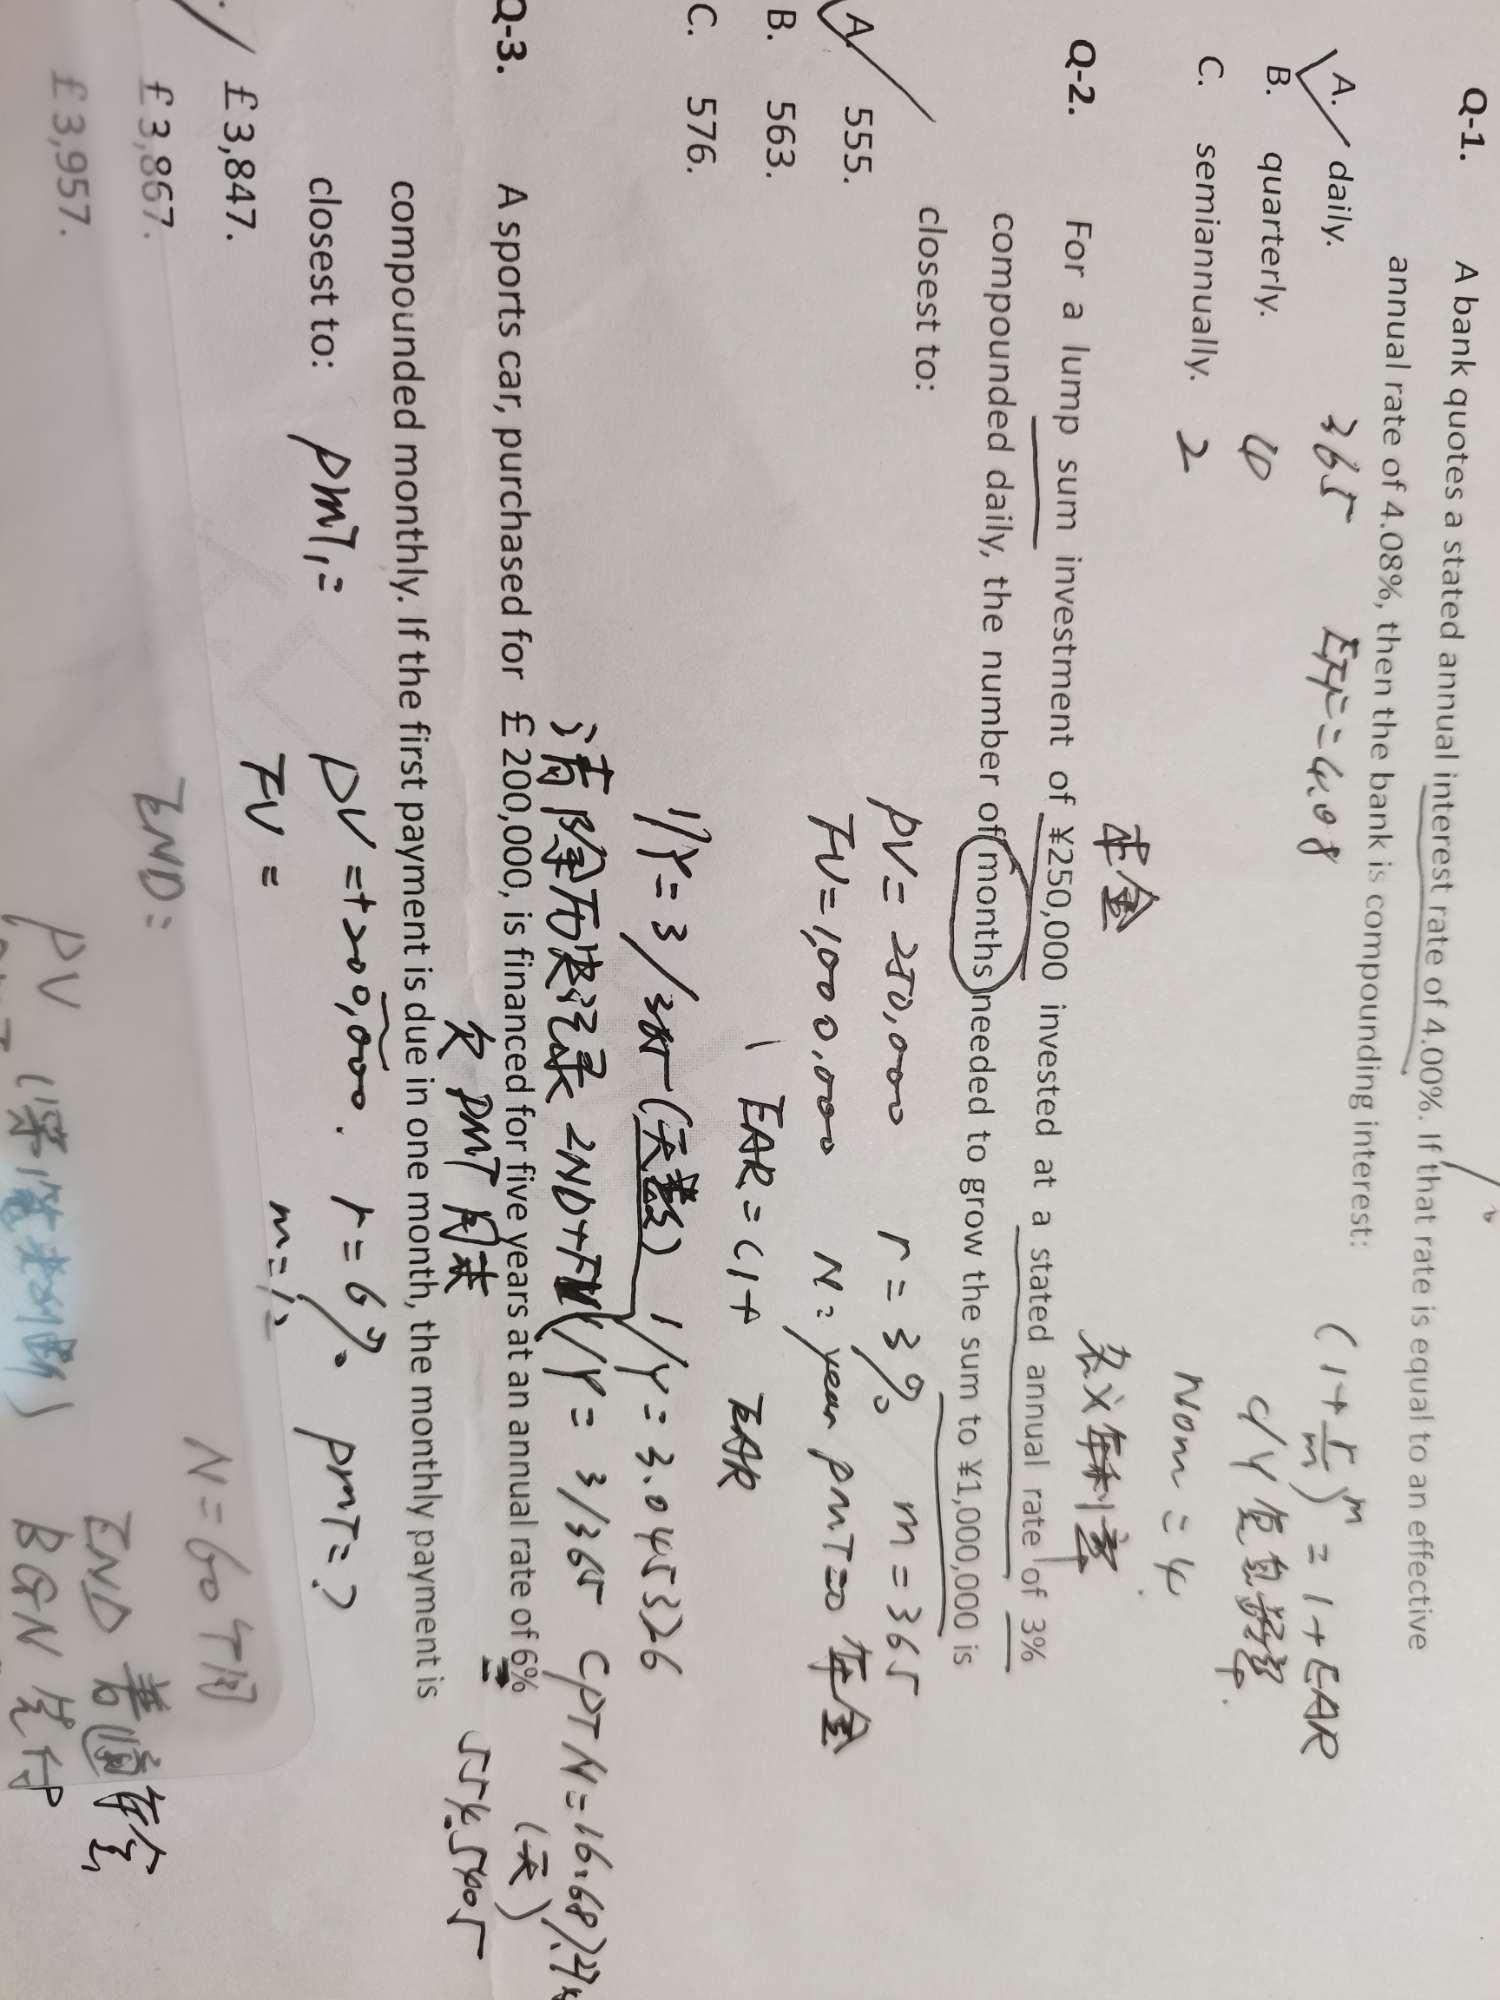 Q-1. A bank quotes a stated annual interest rate of 4.00%. If that rate is equal to an effective
annual rate of 4.08%, then the bank is compounding interest:
(1+r/m)^m = 1+EAR
A. daily. 365 EFF=4.08
C/Y 复息
B. quarterly. 4
Nom = 4
C. semiannually. 2
本金 名义年利率
Q-2. For a lump sum investment of ¥250,000 invested at a stated annual rate of 3%
compounded daily, the number of months needed to grow the sum to ¥1,000,000 is
closest to:
PV = 250,000 r = 3% m = 365
A. 555.
FV = 1,000,000 N = year PMT=0 年金
B. 563.
EAR = (1+ EAR
C. 576.
I/Y = 3/365 (天数) I/Y = 3.045326
清除历史记录 2ND+FV I/Y = 3/365 CPT N = 16.687.74
(天)
Q-3. A sports car, purchased for £200,000, is financed for five years at an annual rate of 6%
欠 PMT 月末 554.5405
compounded monthly. If the first payment is due in one month, the monthly payment is
closest to: PMT,= PV =+200,000. r = 6% PMT=?
FV = m=12
£3,847.
N = 60个月
£3,867. END:
END 普通年金
£3,957. PV
BGN 先付